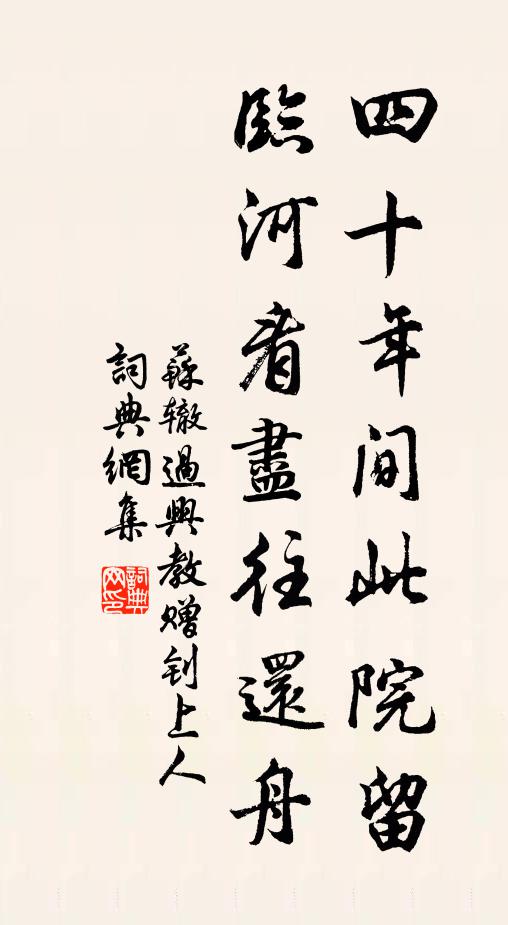 四十年间此院留
臨河看盡往還舟
蘇辙過興教赠钊上人
詞典網集
詞典
网印